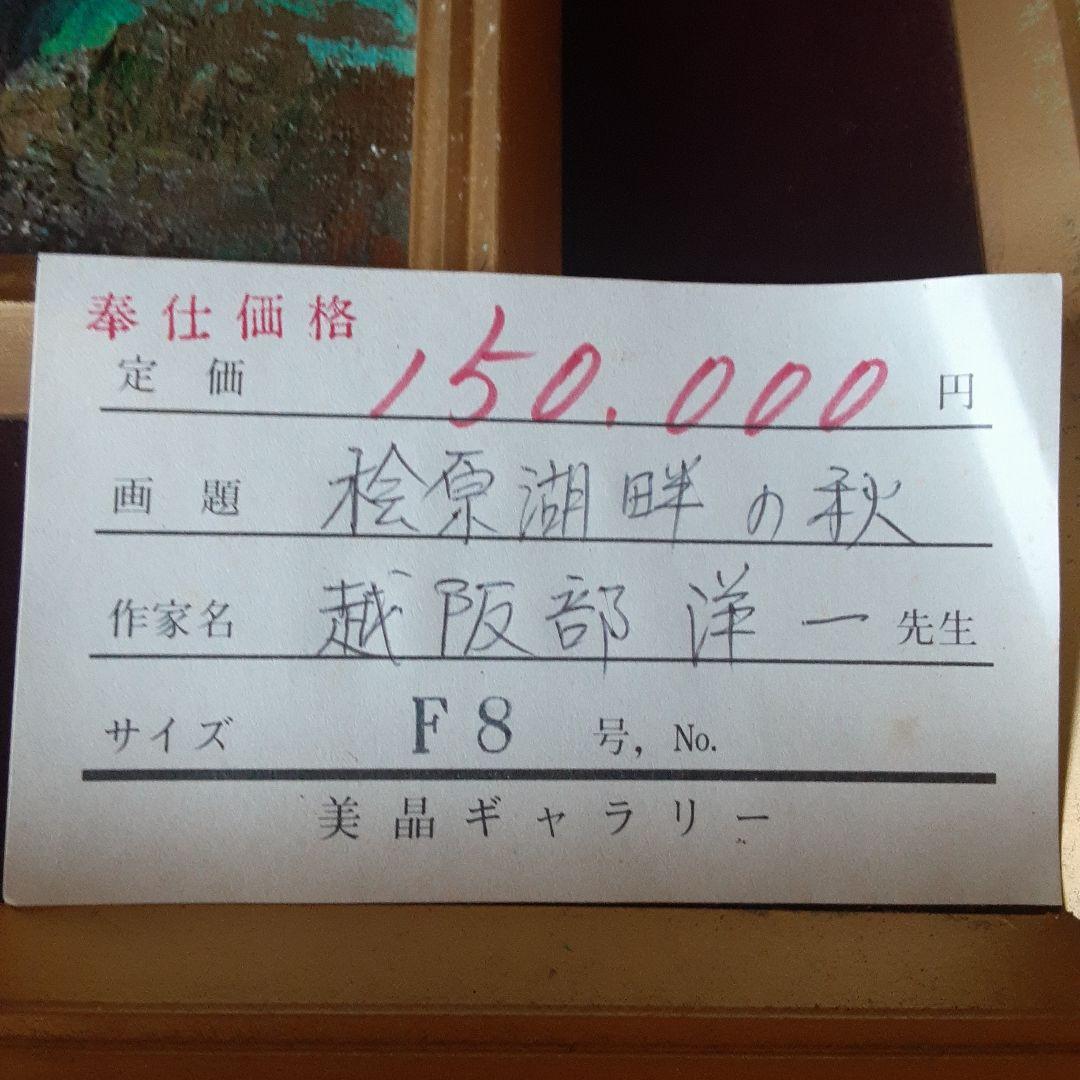 奉仕価格
定価 150.000 円
画題 桧原湖畔の秋
作家名 越阪部洋一 先生
サイズ F8 号, No.
美晶ギャラリー